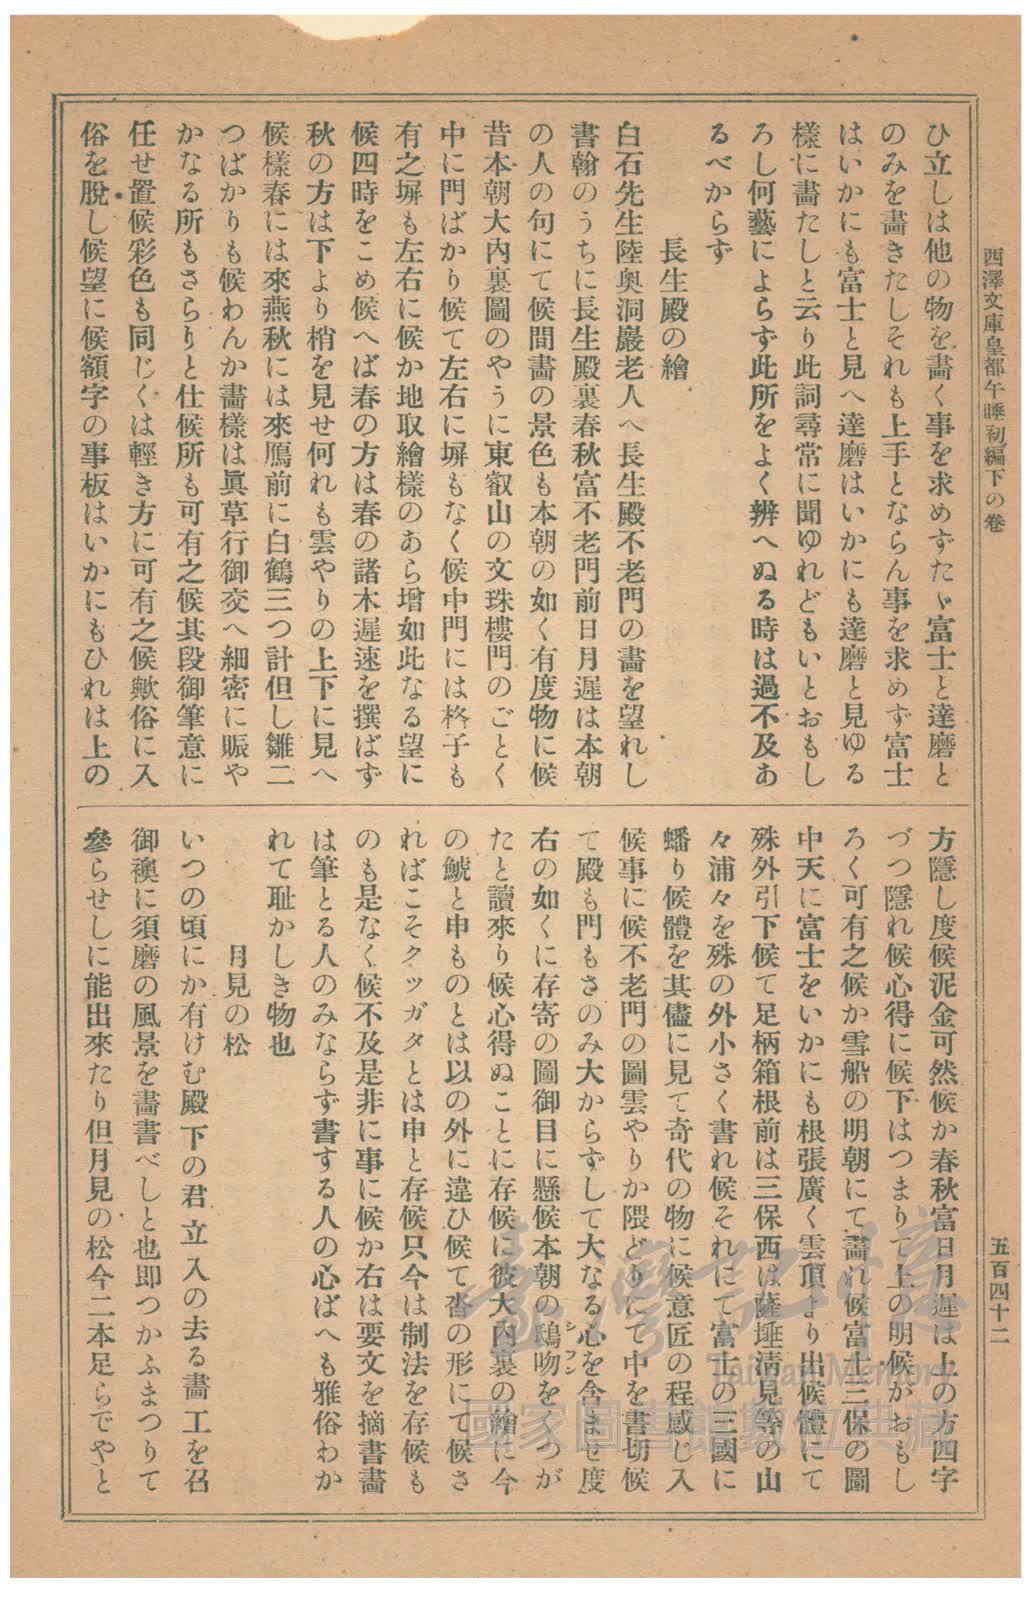 西澤文庫皇都午睡初編下の卷
五百四十二
ひ立しは他の物を畵く事を求めずたゞ富士と達磨と
のみを畵きたしそれも上手とならん事を求めず富士
はいかにも富士と見へ達磨はいかにも達磨と見ゆる
樣に畵たしと云り此詞尋常に聞ゆれどもいとおもし
ろし何藝によらず此所をよく辨へぬる時は過不及あ
るべからず
長生殿の繪
白石先生陸奥洞巖老人へ長生殿不老門の畵を望れし
書翰のうちに長生殿裏春秋富不老門前日月遲は本朝
の人の句にて候間畵の景色も本朝の如く有度物に候
昔本朝大內裏圖のやうに東叡山の文珠樓門のごとく
中に門ばかり候て左右に塀もなく候中門には柊子も
有之塀も左右に候か地取繪樣のあら增如此なる望に
候四時をこめ候へば春の方は春の諸木遲速を撰ばず
秋の方は下より梢を見せ何れも雲やりの上下に見へ
候樣春には來燕秋には來鴈前に白鶴三つ計但し雛二
つばかりも候わんか畵樣は眞草行御交へ細密に賑や
かなる所もさらりと仕候所も可有之候其段御筆意に
任せ置候彩色も同じくは輕き方に可有之候歟俗に入
俗を脫し候望に候額字の事板はいかにもひれは上の
方隱し度候泥金可然候か春秋富日月遲は上の方四字
づつ隱れ候心得に候下はつまりて上の明候がおもし
ろく可有之候か雪船の明朝にて畵れ候富士三保の圖
中天に富士をいかにも根張廣く雲頂より出候體にて
殊外引下候て足柄箱根前は三保西は薩埵淸見等の山
々浦々を殊の外小さく書れ候それにて富士の三國に
蟠り候體を其儘に見て奇代の物に候意匠の程感じ入
候事に候不老門の圖雲やりか隈どりにて中を書切候
て殿も門もさのみ大からずして大なる心を含ませ度
右の如くに存寄の圖御目に懸候本朝の鴟吻をくつが
シフン
たと讀來り候心得ぬことに存候に彼大內裏の繪に今
の鯱と申ものとは以の外に違ひ候て沓の形にて候さ
ればこそクツガタとは申と存候只今は制法を存候も
のも是なく候不及是非に事に候か右は要文を摘書畵
は筆とる人のみならず書する人の心ばへも雅俗わか
れて耻かしき物也
月見の松
いつの頃にか有けむ殿下の君立入の去る畵工を召
御襖に須磨の風景を畵書べしと也卽つかふまつりて
參らせしに能出來たり但月見の松今二本足らでやと
臺灣記憶
Taiwan Memory
國家圖書館數位典藏